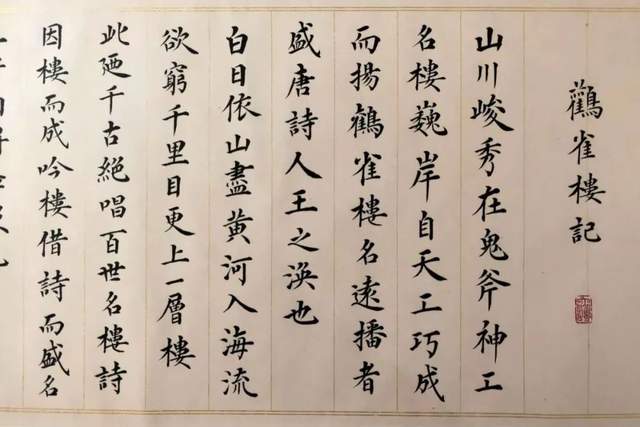 鸛雀樓記
山川峻秀在鬼斧神工
名樓巍岸自天工巧成
而揚鸛雀樓名遠播者
盛唐詩人王之渙也
白日依山盡黃河入海流
欲窮千里目更上一層樓
此乃千古絕唱百世名樓詩
因樓而成吟樓借詩而盛名